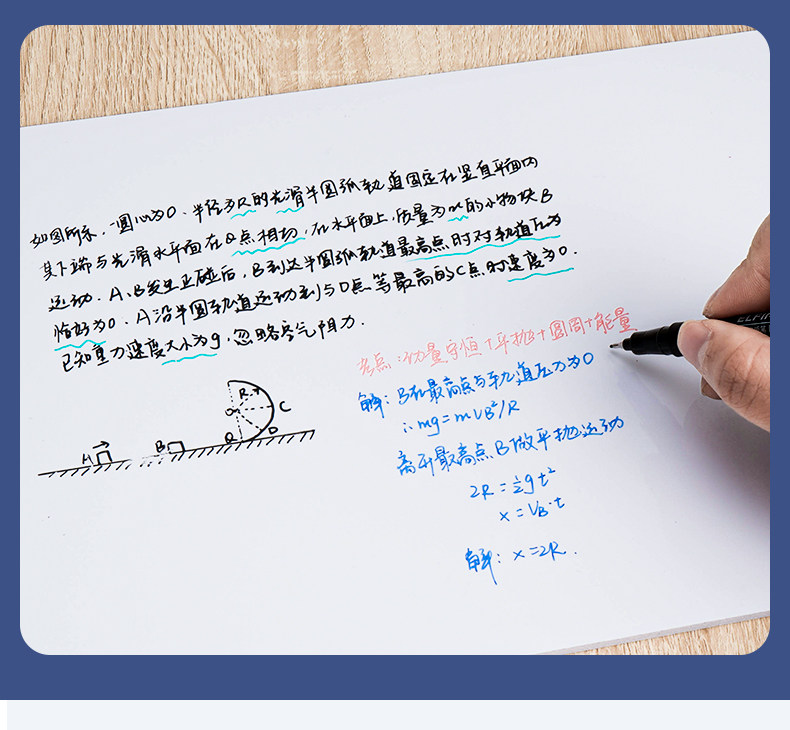 如图所示,一圆心为O、半径为R的光滑半圆弧轨道固定在竖直平面内
其下端与光滑水平面在Q点相切,在水平面上,质量为m的小物块B
运动.A、B发生正碰后,B到达半圆弧轨道最高点时对轨道压力
恰好为0.A沿半圆轨道运动到与O点等高的C点时速度为0.
已知重力速度大小为g,忽略空气阻力.
考点:动量守恒+平抛+圆周+能量
解:B在最高点与轨道压力为0
∴mg=mVB²/R
离开最高点B做平抛运动
2R=½gt²
x=VB·t
解:x=2R.
R
O
C
D
Q
A
B